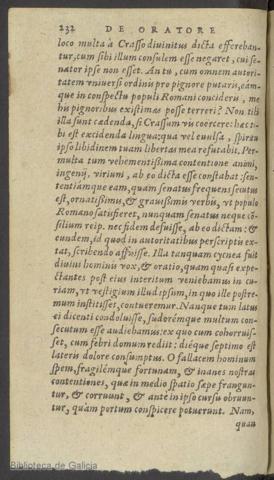 232 DE ORATORE
loco multa à Crasso diuinitus dicta effereban-
tur, cum sibi illum consulem esse negaret, cui se-
nator ipse non esset. An tu, cum omnem autori-
tatem vniuersi ordinis pro pignore putaris, eám-
que in conspectu populi Romani concideris, me
his pignoribus existimas posse terreri? Non tibi
illa sunt cædenda, si Crassum vis coërcere: hæc ti-
bi est excidenda lingua: qua vel euulsa, spiritu
ipso libidinem tuam libertas mea refutabit. Per-
multa tum vehementissima contentione animi,
ingenij, virium, ab eo dicta esse constabat: sen-
tentiámque eam, quam senatus frequens secutus
est, ornatissimis, & grauissimis verbis, vt populo
Romano satisfieret, nunquam senatus neque cō-
silium reip. nec fidem defuisse, ab eo dictam: &
eundem, id quod in autoritatibus perscriptis ex-
tat, scribendo affuisse. Illa tanquam cycnea fuit
diuini hominis vox, & oratio, quam quasi expe-
ctantes post eius interitum veniebamus in cu-
riam, vt vestigium illud ipsum, in quo ille postre-
mum institisset, contueremur. Nanque tum latus
ei dicenti condoluisse, sudorémque multum con-
secutum esse audiebamus: ex quo cum cohorruis-
set, cum febri domum rediit: diéque septimo est
lateris dolore consumptus. O fallacem hominum
spem, fragilémque fortunam, & inanes nostras
contentiones, quæ in medio spatio sæpe frangun-
tur, & corruunt, & ante in ipso cursu obruun-
tur, quàm portum conspicere potuerunt. Nam,
quan
Biblioteca de Galicia